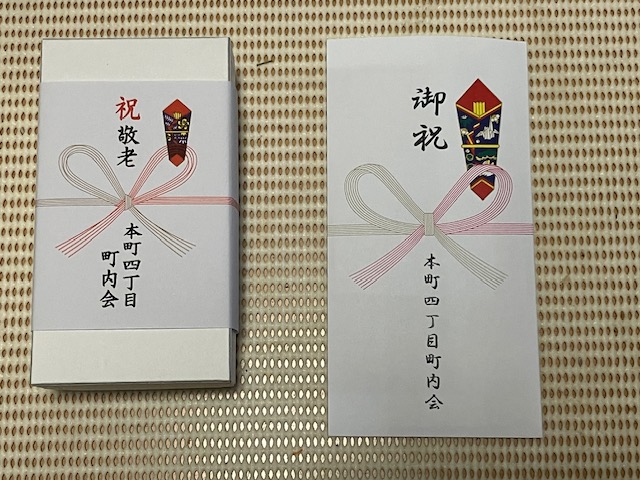 祝敬老
本町四丁目
町内会
御祝
本町四丁目町内会